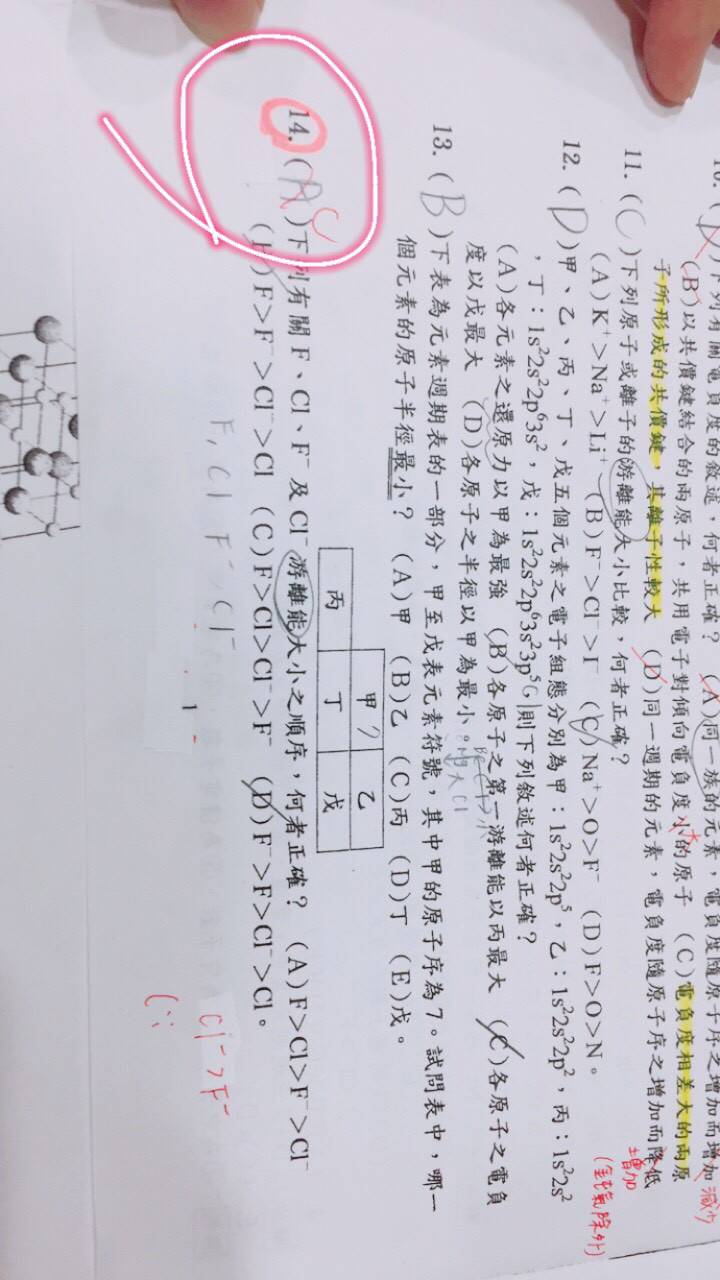 10. (D)下列有關電負度的敘述，何者正確？ (A)同一族的元素，電負度隨原子序之增加而增加 減少
(B)以共價鍵結合的兩原子，共用電子對傾向電負度小的原子 (C)電負度相差大的兩原
子所形成的共價鍵，其離子性較大 (D)同一週期的元素，電負度隨原子序之增加而降低
增加
(鈍氣除外)
11. (C)下列原子或離子的游離能大小比較，何者正確？
(A)K⁺>Na⁺>Li⁺ (B)F⁻>Cl⁻>I⁻ (C)Na⁺>O>F⁻ (D)F>O>N。
12. (D)甲、乙、丙、丁、戊五個元素之電子組態分別為甲：1s²2s²2p⁵，乙：1s²2s²2p²，丙：1s²2s²
，丁：1s²2s²2p⁶3s²，戊：1s²2s²2p⁶3s²3p⁵，則下列敘述何者正確？
(A)各元素之還原力以甲為最強 (B)各原子之第一游離能以丙最大 (C)各原子之電負
度以戊最大 (D)各原子之半徑以甲為最小。
13. (B)下表為元素週期表的一部分，甲至戊表元素符號，其中甲的原子序為7。試問表中，哪一
個元素的原子半徑最小？ (A)甲 (B)乙 (C)丙 (D)丁 (E)戊。
甲 7 乙
丙 丁 戊
14. (A C)下列有關F、Cl、F⁻及Cl⁻游離能大小之順序，何者正確？ (A)F>Cl>F⁻>Cl⁻
(B)F>F⁻>Cl⁻>Cl (C)F>Cl>Cl⁻>F⁻ (D)F⁻>F>Cl⁻>Cl。
F, Cl F⁻, Cl⁻
Cl⁻>F⁻
1